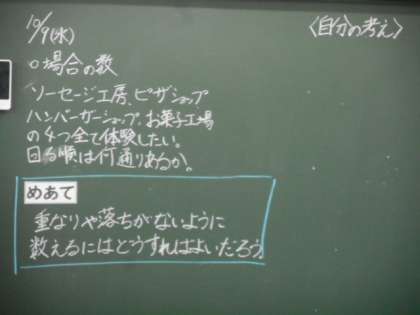 10/9(水)
〈自分の考え〉
○場合の数
ソーセージ工房、ピザショップ
ハンバーガーショップ、お菓子工場
の4つ全て体験したい。
回る順は何通りあるか。
めあて
重なりや落ちがないように
数えるにはどうすればよいだろう